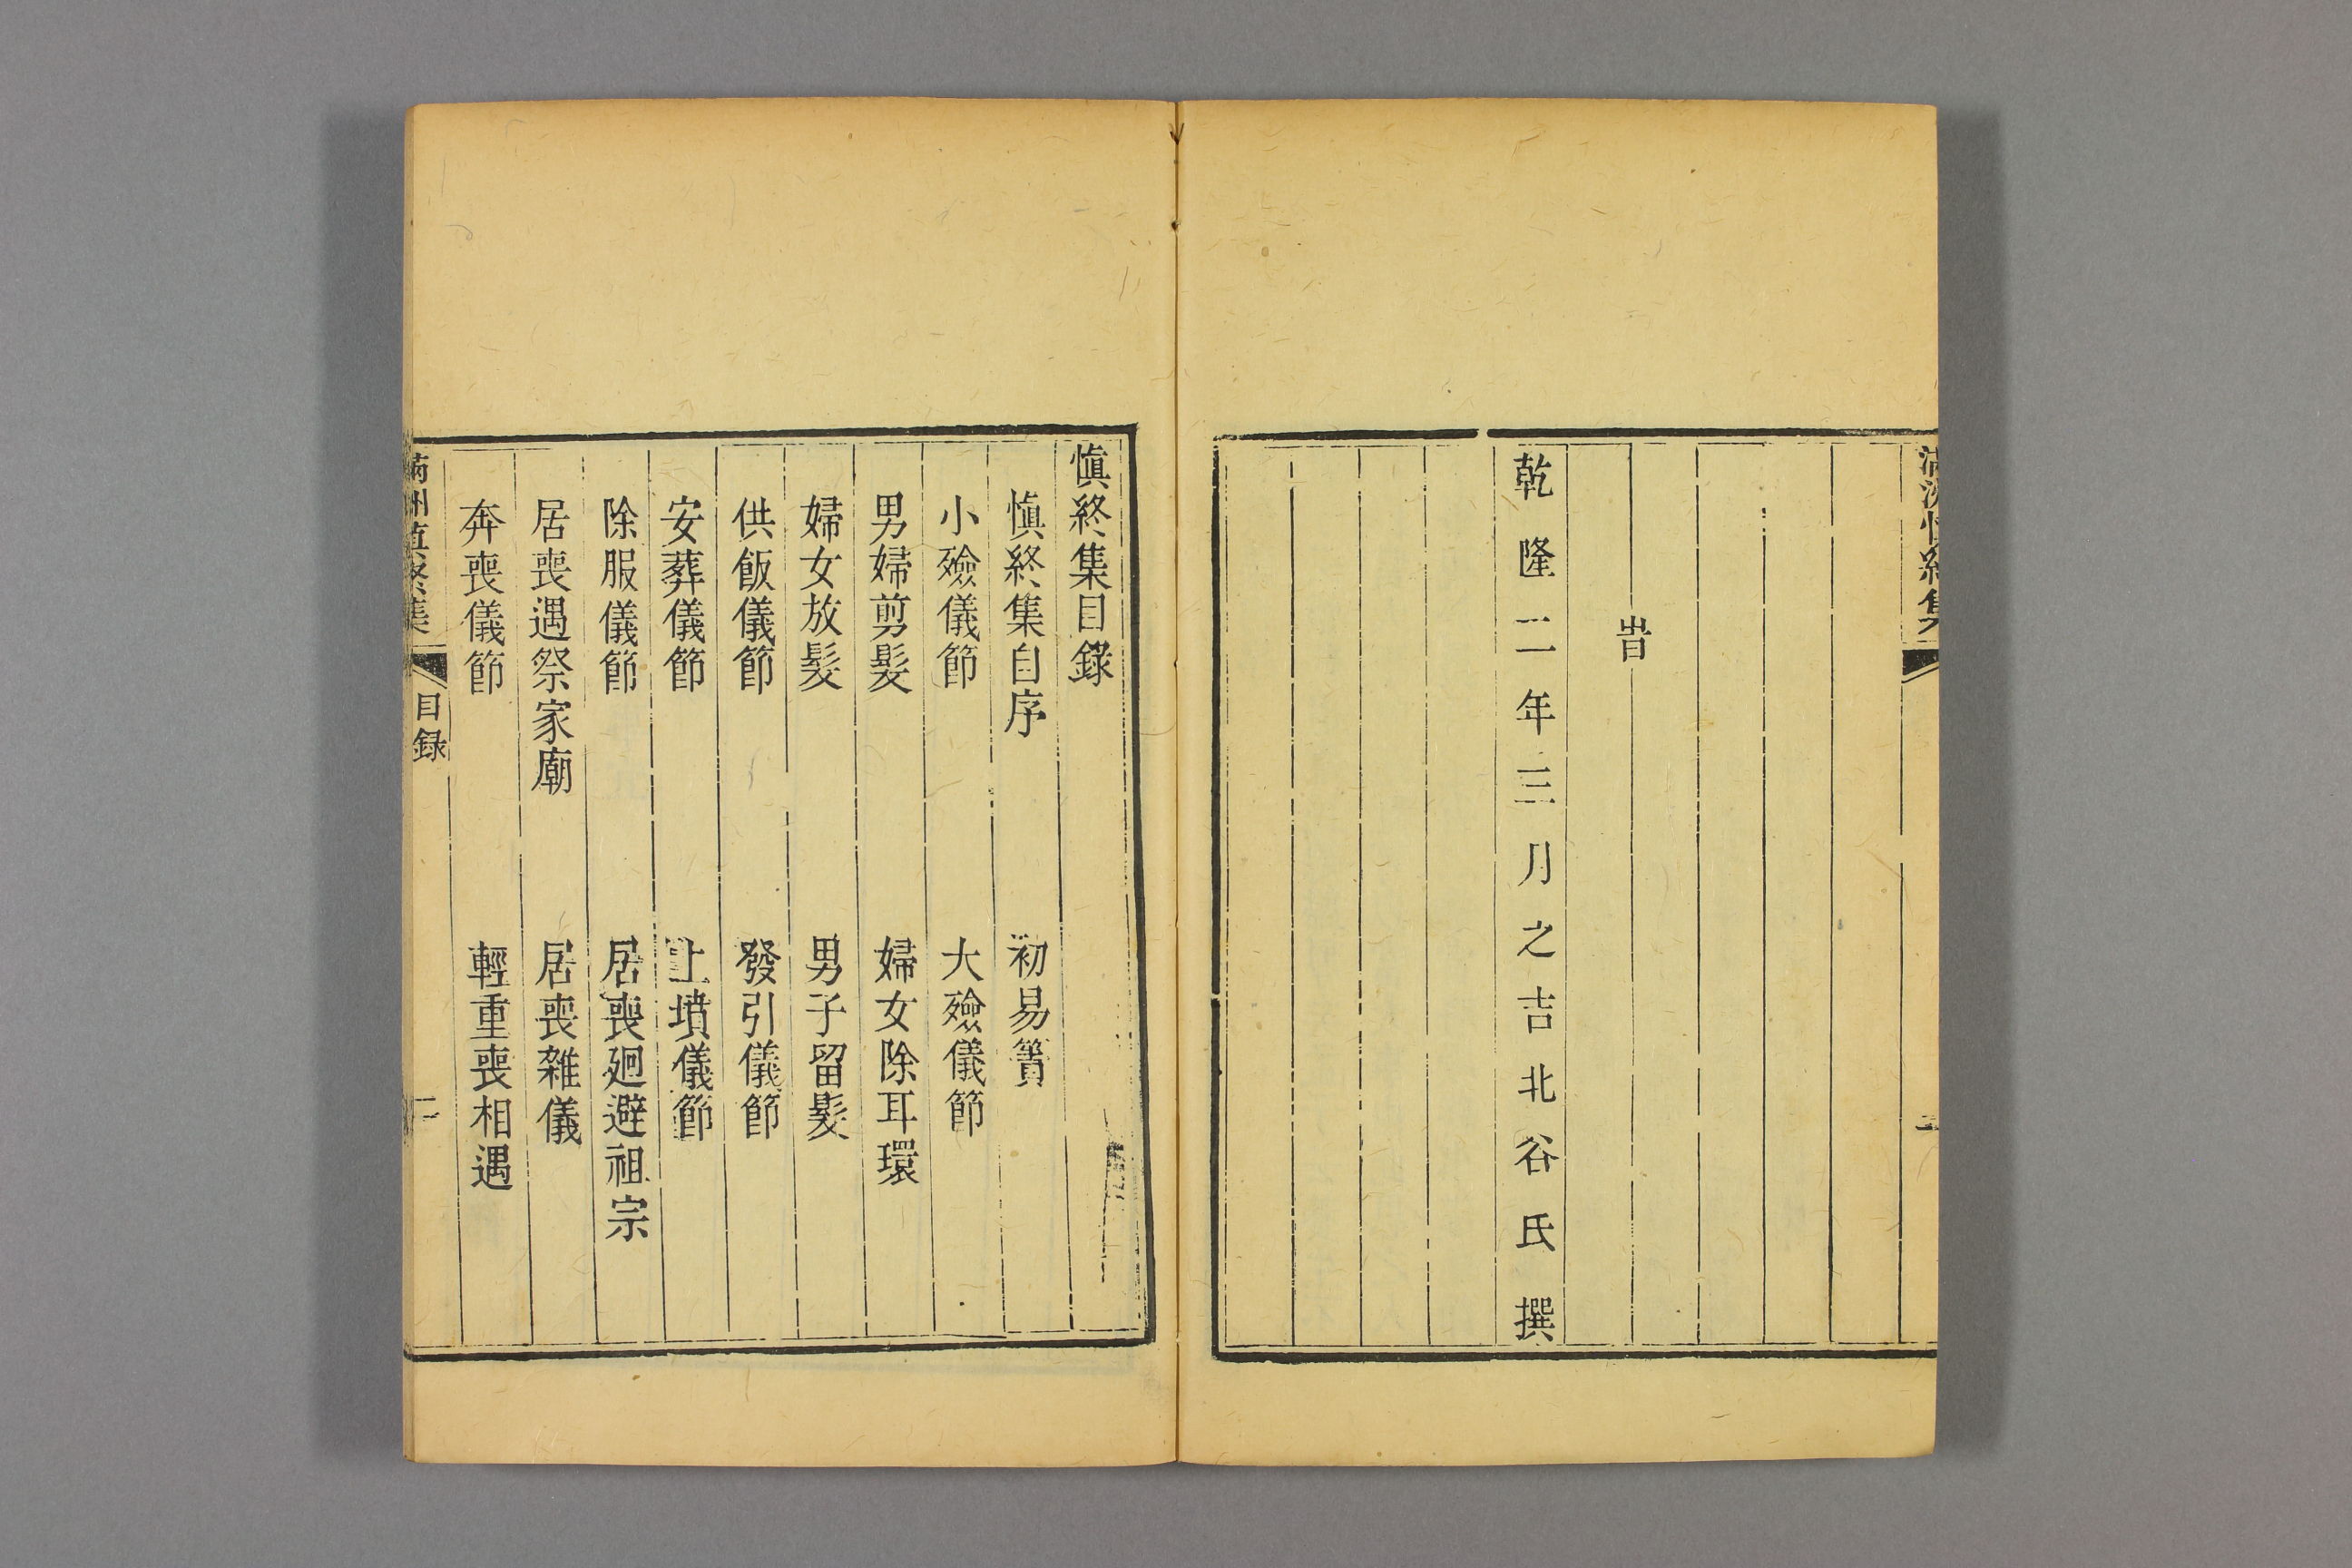 旹
乾隆二年三月之吉北谷氏撰
慎終集目錄
慎終集自序 初易簀
小殮儀節 大殮儀節
男婦剪髮 婦女除耳環
婦女放髮 男子留髮
供飯儀節 發引儀節
安葬儀節 上墳儀節
除服儀節 居喪廻避祖宗
居喪遇祭家廟 居喪雜儀
奔喪儀節 輕重喪相遇
滿洲慎終集 目錄 一